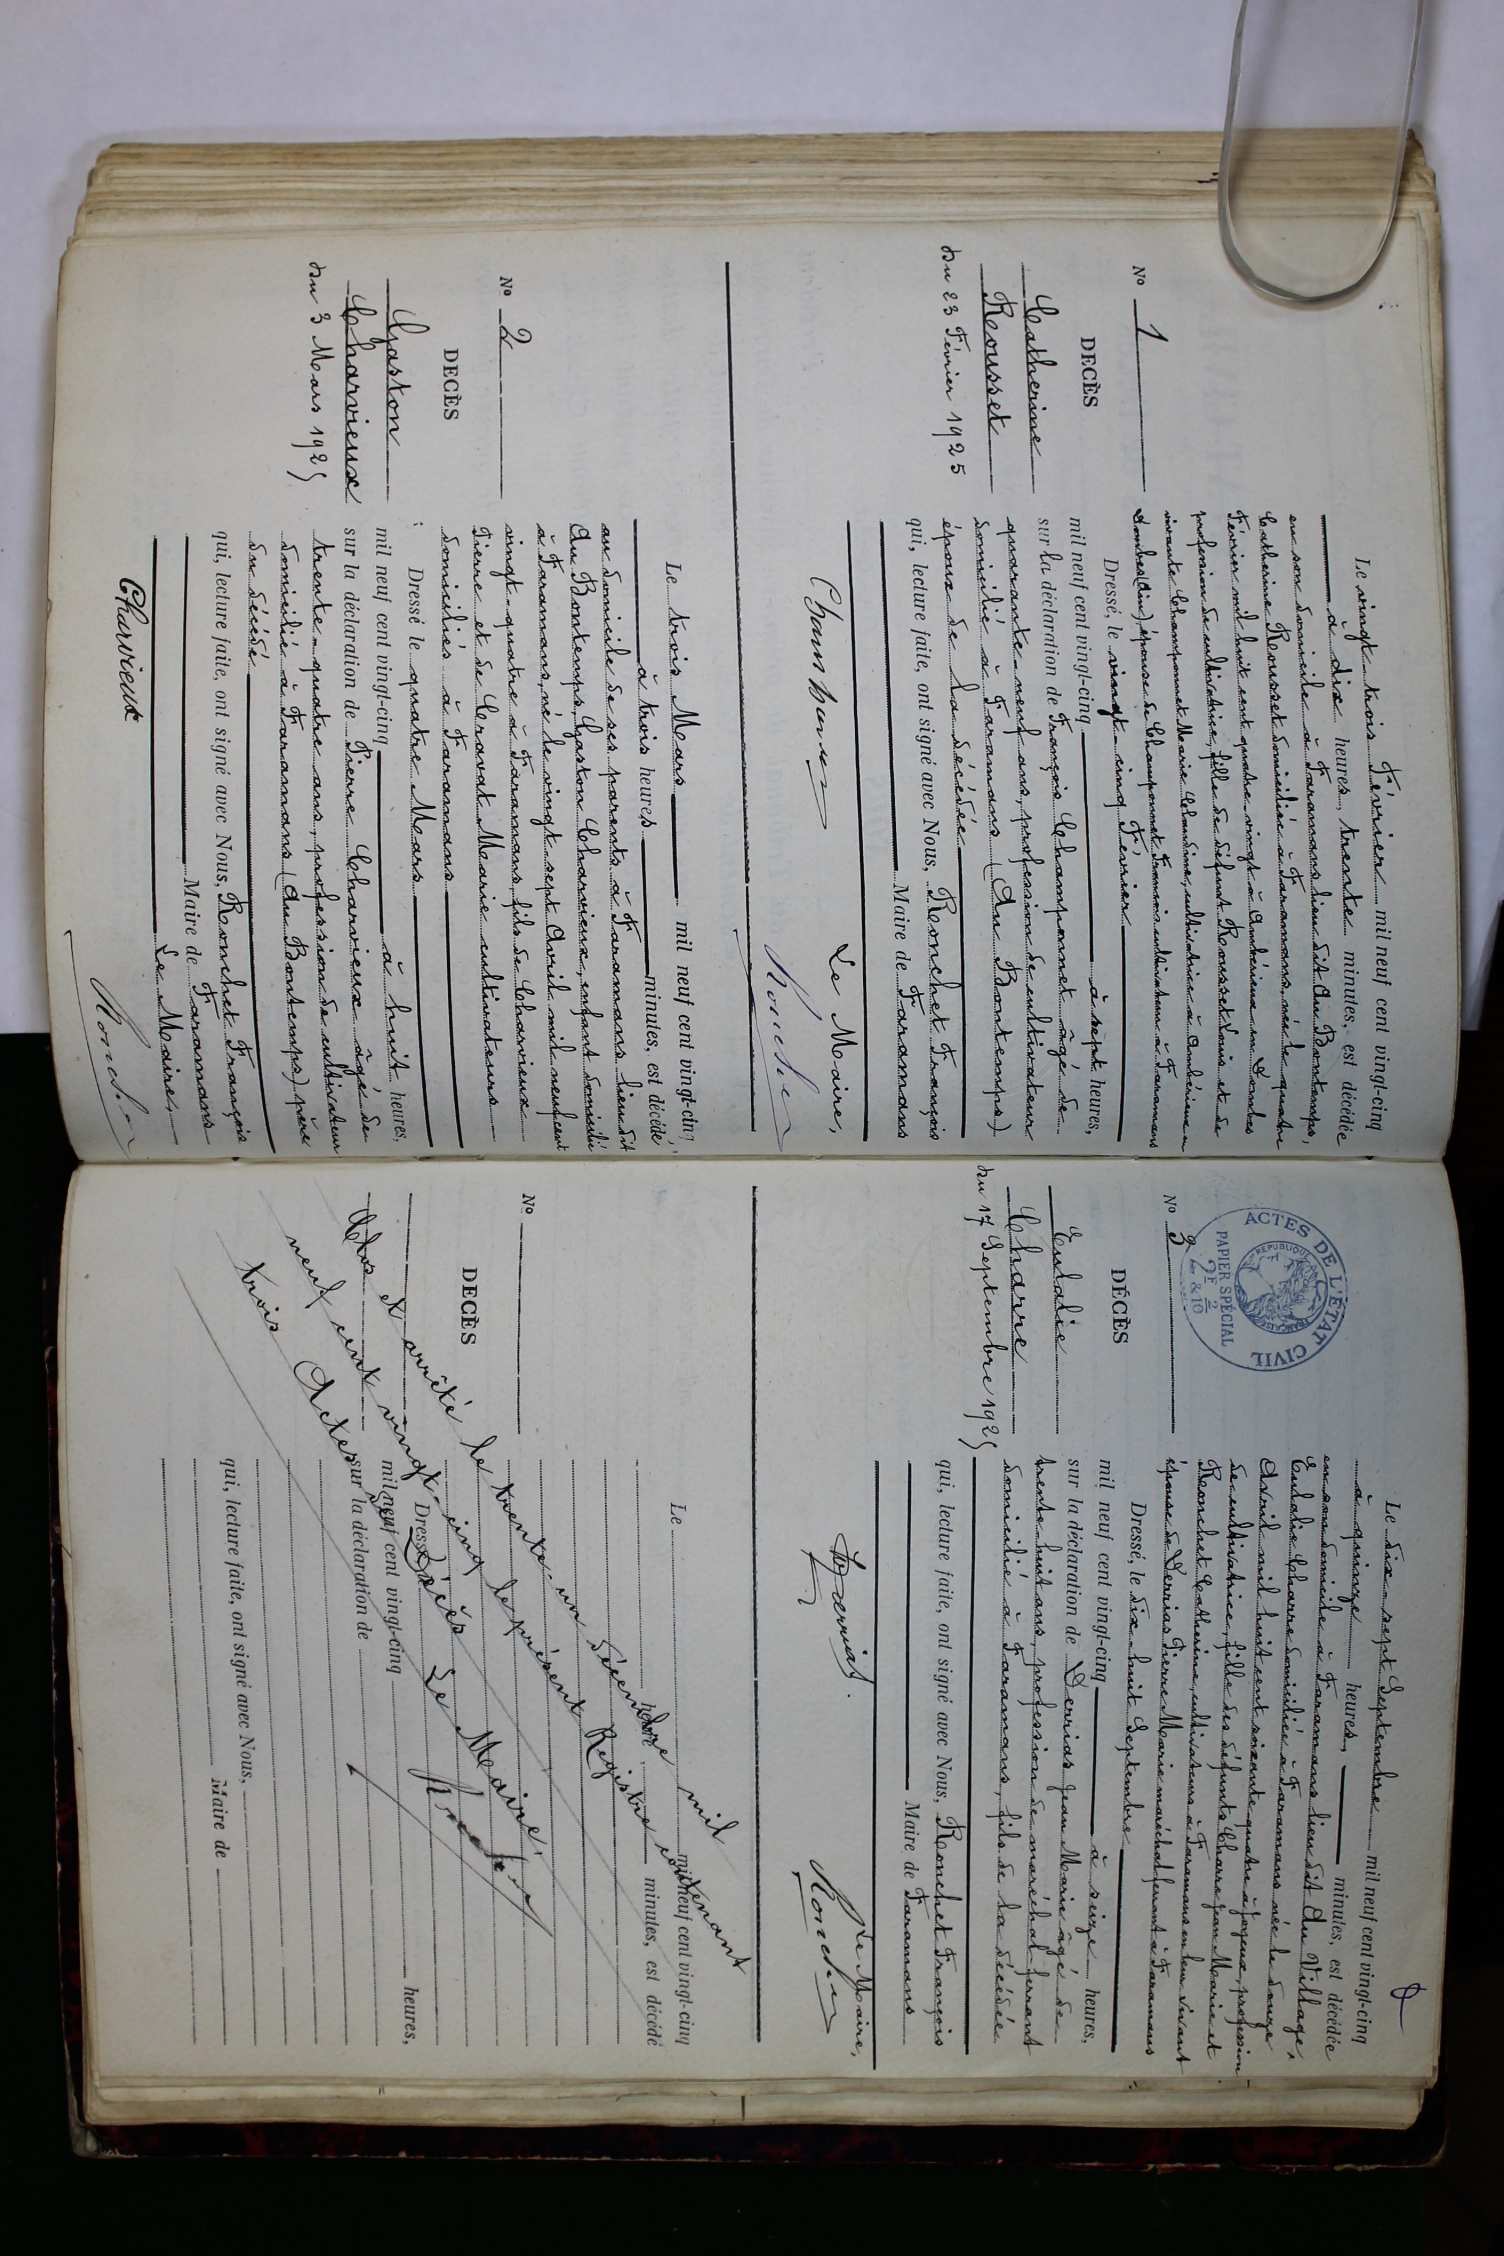 Nº 1
DECÈS
Catherine
Rousset
du 23 Février 1925
Le vingt-trois Février mil neuf cent vingt-cinq
à dix heures, trente minutes, est décédée
en son domicile à Faramans lieu dit Au Bontemps,
Catherine Rousset domiciliée à Faramans, née le quatre
Février mil huit cent quatre-vingt à Ambérieux en Dombes
profession de cultivatrice, fille de défunt Rousset Louis et de
vivante Champonnet Marie Claudine, cultivatrice à Ambérieux en
Dombes (Ain), épouse de Champonnet François cultivateur à Faramans
Dressé, le vingt-cinq Février
mil neuf cent vingt-cinq à sept heures,
sur la déclaration de François Champonnet âgé de
quarante-neuf ans, profession de cultivateur
domicilié à Faramans (Au Bontemps)
époux de la décédée
qui, lecture faite, ont signé avec Nous, Ronchet François
Maire de Faramans
Le Maire,
Ronchet
Nº 2
DECÈS
Gaston
Charvieux
du 3 Mars 1925
Le trois Mars mil neuf cent vingt-cinq
à trois heures minutes, est décédé
au domicile de ses parents à Faramans lieu dit
Au Bontemps, Gaston Charvieux, enfant domicilié
à Faramans, né le vingt sept Avril mil neuf cent
vingt-quatre à Faramans, fils de Charvieux
Pierre et de Cravat Marie cultivateurs
domiciliés à Faramans
Dressé le quatre Mars
mil neuf cent vingt-cinq à huit heures,
sur la déclaration de Pierre Charvieux âgé de
trente-quatre ans, profession de cultivateur
domicilié à Faramans (Au Bontemps) père
du décédé
qui, lecture faite, ont signé avec Nous, Ronchet François
Maire de Faramans
Le Maire,
Charvieux
Ronchet
ACTES DE L'ÉTAT CIVIL
RÉPUBLIQUE FRANÇAISE
PAPIER SPÉCIAL
2F
&10
Nº 3
DÉCÈS
Eulalie
Charre
du 17 Septembre 1925
Le dix-sept Septembre mil neuf cent vingt-cinq
à quinze heures, minutes, est décédée
en son domicile à Faramans lieu dit Au Village,
Eulalie Charre domiciliée à Faramans née le douze
Avril mil huit cent soixante quatre à Joyeux, profession
de cultivatrice, fille des défunts Charre Jean Marie et
Ronchet Catherine, cultivateurs à Faramans en leur vivant
épouse de Derrias Pierre Marie maréchal ferrant à Faramans
Dressé, le dix-huit Septembre
mil neuf cent vingt-cinq à seize heures,
sur la déclaration de Derrias Jean Marie âgé de
trente-huit ans, profession de maréchal ferrant
domicilié à Faramans, fils de la décédée
qui, lecture faite, ont signé avec Nous, Ronchet François
Maire de Faramans
Le Maire,
Ronchet
Nº
DECÈS
Le mil neuf cent vingt-cinq
heures minutes, est décédé
Dressé
mil neuf cent vingt-cinq heures,
sur la déclaration de
qui, lecture faite, ont signé avec Nous,
Maire de
Clos et arrêté le trente-un Décembre mil
neuf cent vingt-cinq le présent Registre contenant
trois Actes de Décès
Le Maire,